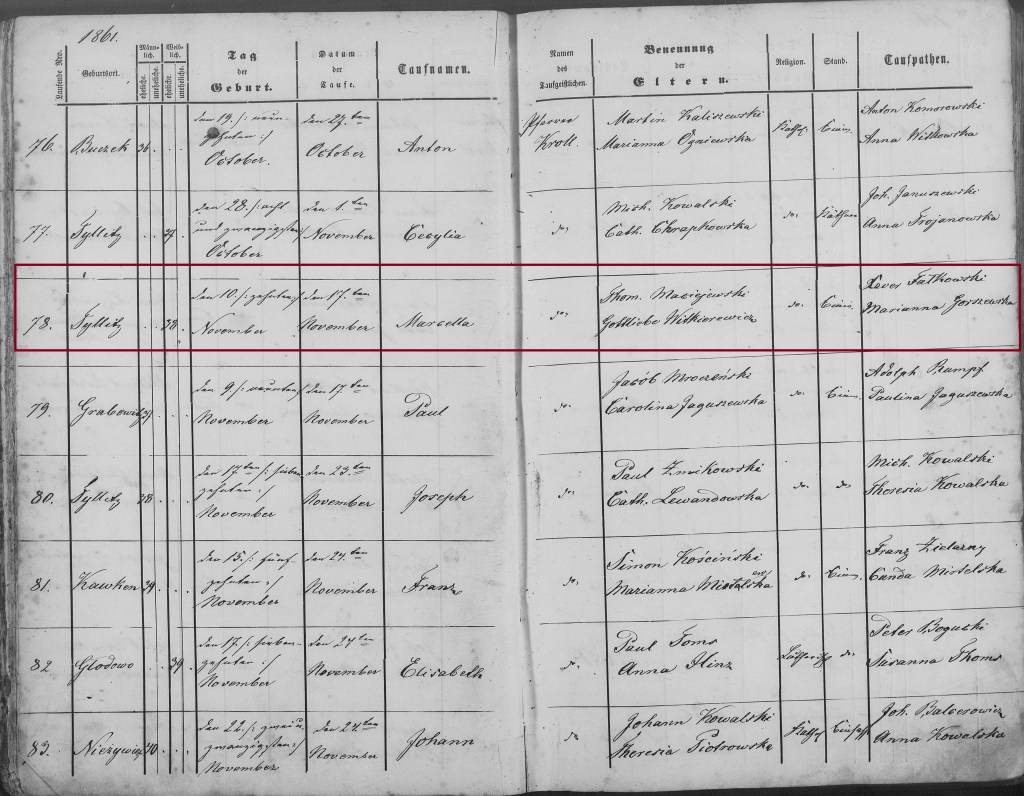 1861.
Laufende Nro.
Geburtsort.
Männlich.
eheliche.
uneheliche.
Weiblich.
eheliche.
uneheliche.
Tag
der
Geburt.
Datum
der
Taufe.
Taufnamen.
Namen
des
Taufgeistlichen.
Benennung
der
Eltern.
Religion.
Stand.
Taufpathen.
76. Buczek 36 den 19. /: neunzehnten :/ October. den 27. ten October Anton
Pfarrer Kroll. Martin Kaliszewski Marianna Ogniewska Anton Komorowski Anna Witkowska
77. Tyllitz 37 den 28. /: acht und zwanzigsten :/ October den 1. ten November Cecylia
do Mich. Kowalski Cath. Chrapkowska do Joh. Januszewski Anna Trojanowska
78. Tyllitz 38 den 10. /: zehnten :/ November den 17. ten November Marcella
do Thom. Maciejewski Gottliebe Witkierewicz do Xaver Falkowski Marianna Gorszewska
79. Grabowitz 37 den 9 /: neunten :/ November den 17. ten November Paul
do Jacób Mroczeński Carolina Jaguszewska do Adolph Rumpf Paulina Jaguszewska
80. Tyllitz 38 den 17 ten /: siebenzehnten :/ November den 23. ten November Joseph
do Paul Zmikowski Cath. Lewandowska do do Mich. Kowalski Theresia Kowalska
81. Kawken 39 den 15. /: fünfzehnten :/ November den 24. ten November Franz
do Simon Kościński Marianna do Franz Zielazny Mistelska
82 Glodowo 39 den 17. /: siebenzehnten :/ November den 24 ten November Elisabeth
do Paul Toms Anna Hinz do Peter Boguski Susanna Thoms
83. Nieżywięc 40 den 22. /: zwei u. zwanzigsten :/ November den 24. ten November Johann
do Johann Kowalski Theresia Piotrowska Joh. Balcerowicz Anna Kowalska